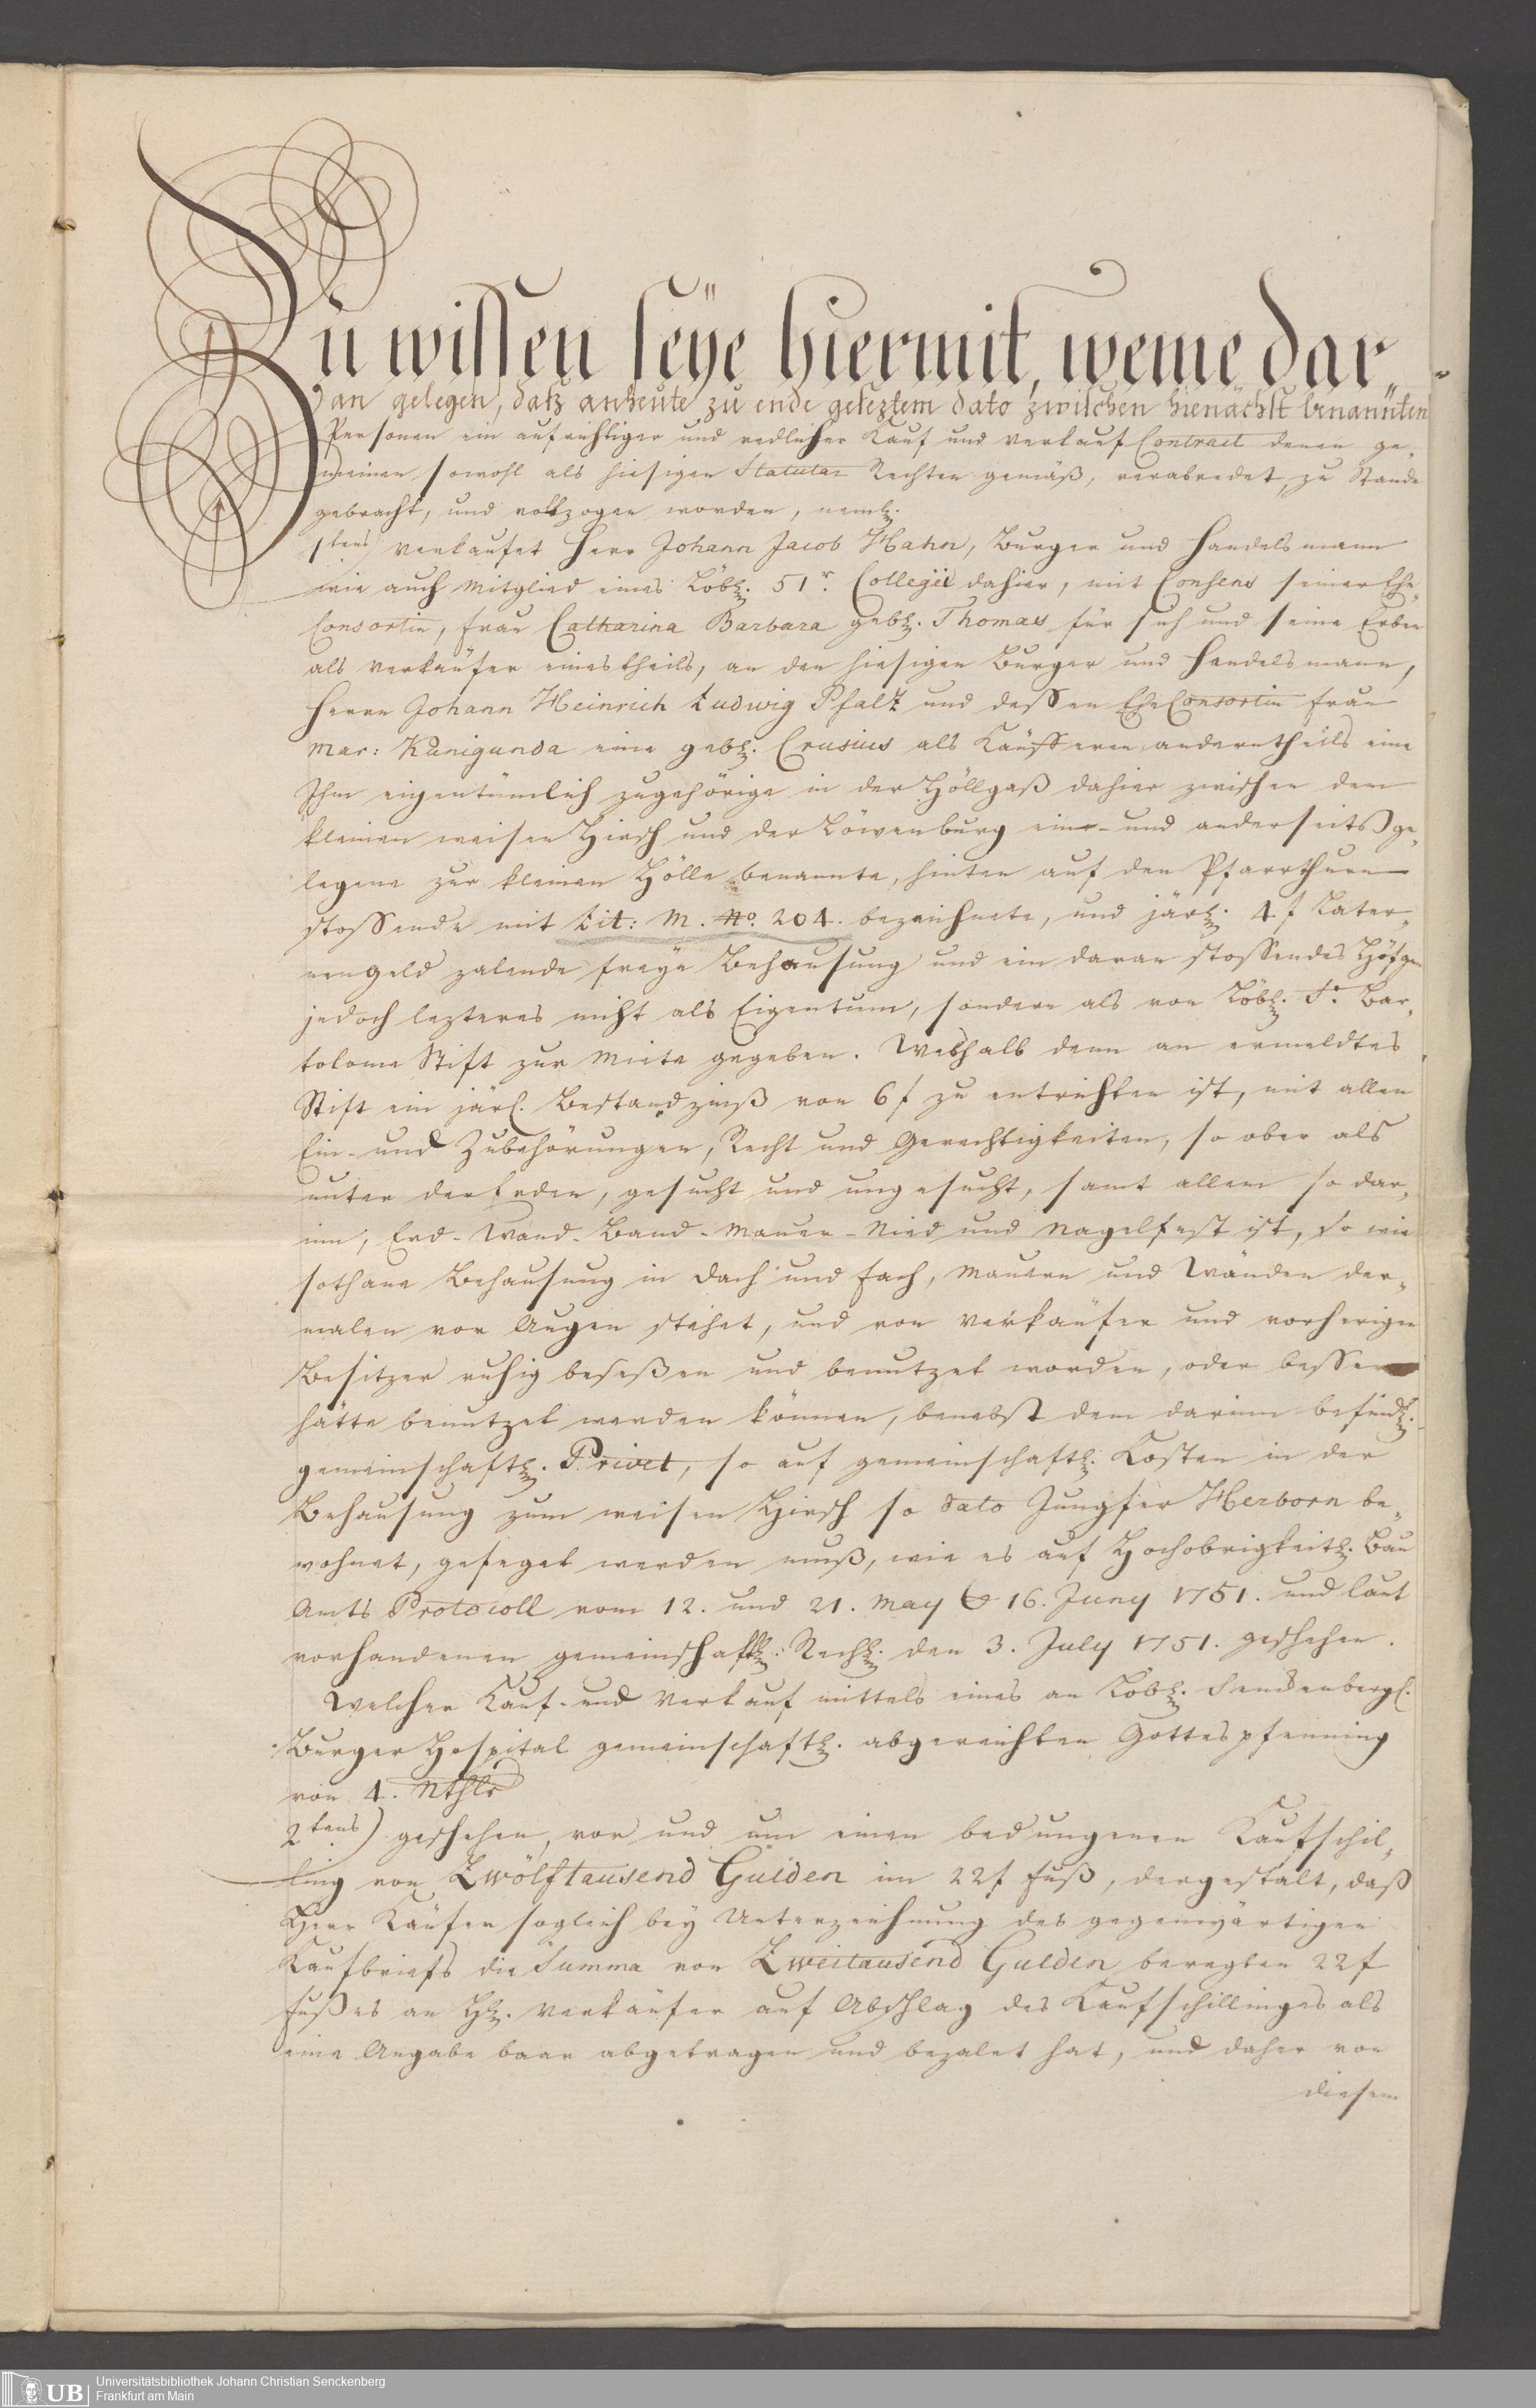 Zu wissen seye hiermit, weme dar„
an gelegen, daß anheute zu ende geseztem dato zwischen hienächst benannten
Personen ein aufrichtiger und redlicher Kauf und verkauf Contract denen ge„
meinen sowohl als hiesigen Statutar Rechten gemäß, verabredet, zu Stande
gebracht, und vollzogen worden, neml.
1tens verkaufet Herr Johann Jacob Hahn, Burger und Handelsmann
wie auch Mitglied eines Löbl. 51r. Collegii dahier, mit Consens seiner Ehe„
Consortin, Frau Catharina Barbara gebl. Thomas für sich und seine Erben
als Verkäufer eines theils, an den hiesigen Burger und Handelsmann,
Herrn Johann Heinrich Ludwig Pfaltz und dessen Ehe Consortin Frau
Mar: Kunigunda eine gebl. Crusius als Käufferen anderntheils eine
Ihm eigentümlich zugehörige in der Höllgaß dahier zwischen dem
kleinen weisen Hirsch und der Löwenburg eine- und anderseits ge„
legene zur kleinen Hölle benannte, hinten auf den Pfarrthurn
stossende mit Lit: M. No. 204. bezeichnete, und järl. 4. f Later„
nengeld zalende freye Behausung und ein daran stossendes Höfgen
jedoch lezteres nicht als Eigentum, sondern als von Löbl. St. Bar„
tolome Stift zur Miete gegeben. Weshalb denn an ermeldtes
Stift ein järl. Bestandzinß von 6 f zu entrichten ist, mit allen
Ein- und Zubehörungen, Recht und Gerechtigkeiten, so ober als
unter der Erden, gesucht und ungesucht, samt allem so dar„
inn, Erd- Wand- Band- Mauer- Nied und Nagelfest ist, so wie
sothane Behausung in Dach und Fach, Mauern und Wänden der„
malen vor Augen stehet, und von Verkäufer und vorherigen
Besitzer ruhig beseßen und benutzet worden, oder besser
hätte benutzet werden können, benebst dem darinn befindl.
gemeinschaftl. Privet, so auf gemeinschaftl. Kosten in der
Behausung zum weisen Hirsch so dato Jungfer Herborn be„
wohnet, gefeget werden muß, wie es auf Hochobrigkeitl. Bau
Amts Protocoll vom 12. und 21. May & 16. Juny 1751. und laut
vorhandenen gemeinschaftl. Rechl. den 3. July 1751. geschehen.
Welcher Kauf- und Verkauf mittels eines an Löbl. Senckenbergl.
Burger Hospital gemeinschaftl. abgereichten Gottespfenning
von 4. Rthlr
2tens) geschehen, vor und um einen bedungenen Kaufschil„
ling von Zwölftausend Gulden im 22 f Fuß, dergestalt, daß
Herr Käufer sogleich bey Unterzeichnung des gegenwärtigen
Kaufbriefs die Summa von Zweitausend Gulden beregten 22 f
Fußes an H. Verkäufer auf Abschlag des Kaufschillinges als
eine Angabe baar abgetragen und bezalet hat, und daher von
diesem
UB Universitätsbibliothek Johann Christian Senckenberg
Frankfurt am Main